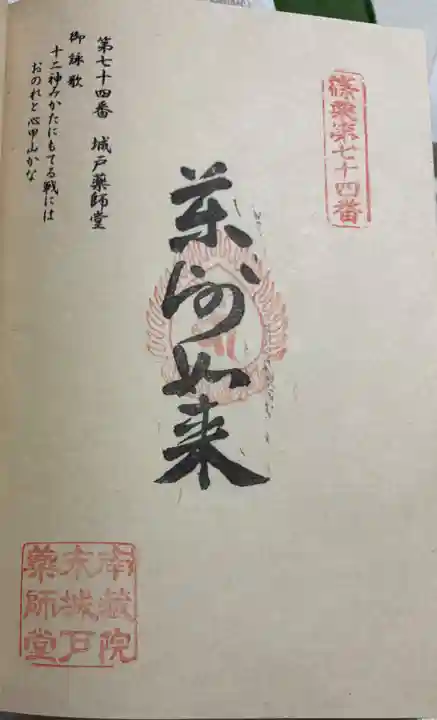 篠栗第七十四番
薬師如来
第七十四番 城戸薬師堂
御詠歌
十二神みかたにもてる戦には
おのれと心甲山かな
南蔵院
末城戸
薬師堂